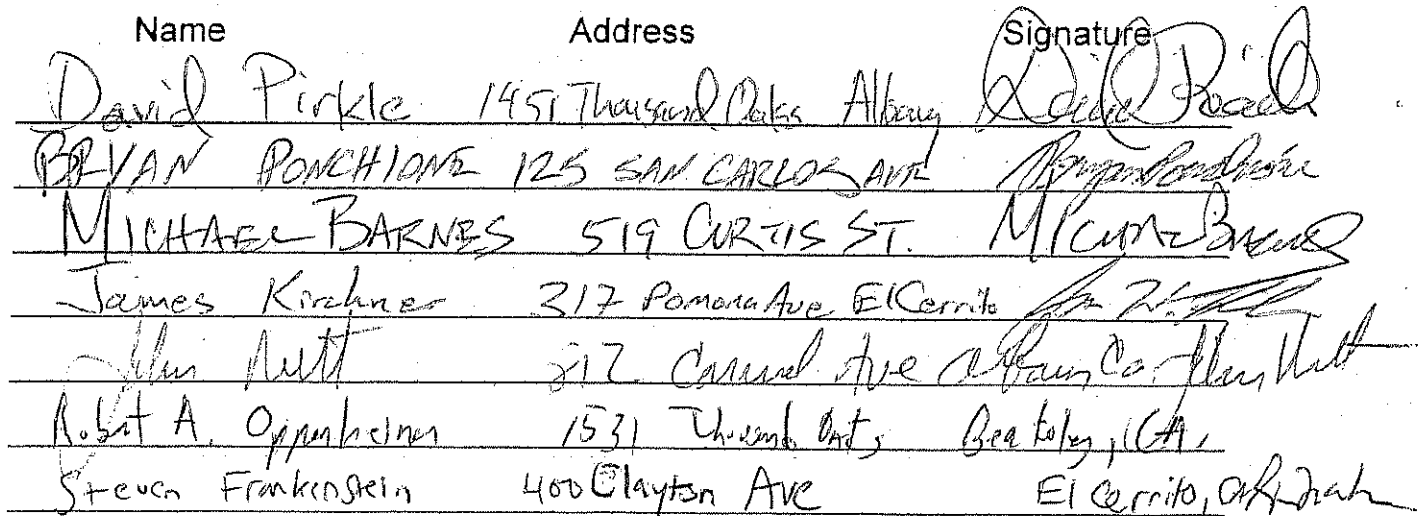 Name Address Signature
David Pirkle 1451 Thousand Oaks Albany
BRYAN PONCHIONE 125 SAN CARLOS AVE
MICHAEL BARNES 519 CURTIS ST.
James Kirchner 317 Pomona Ave El Cerrito
John Nutt Ave Albany Ca John Nutt
Robert A. Oppenheimer 1531 Thousand Oaks Berkeley, CA.
Steven Frankenstein 400 Clayton Ave El Cerrito, CA